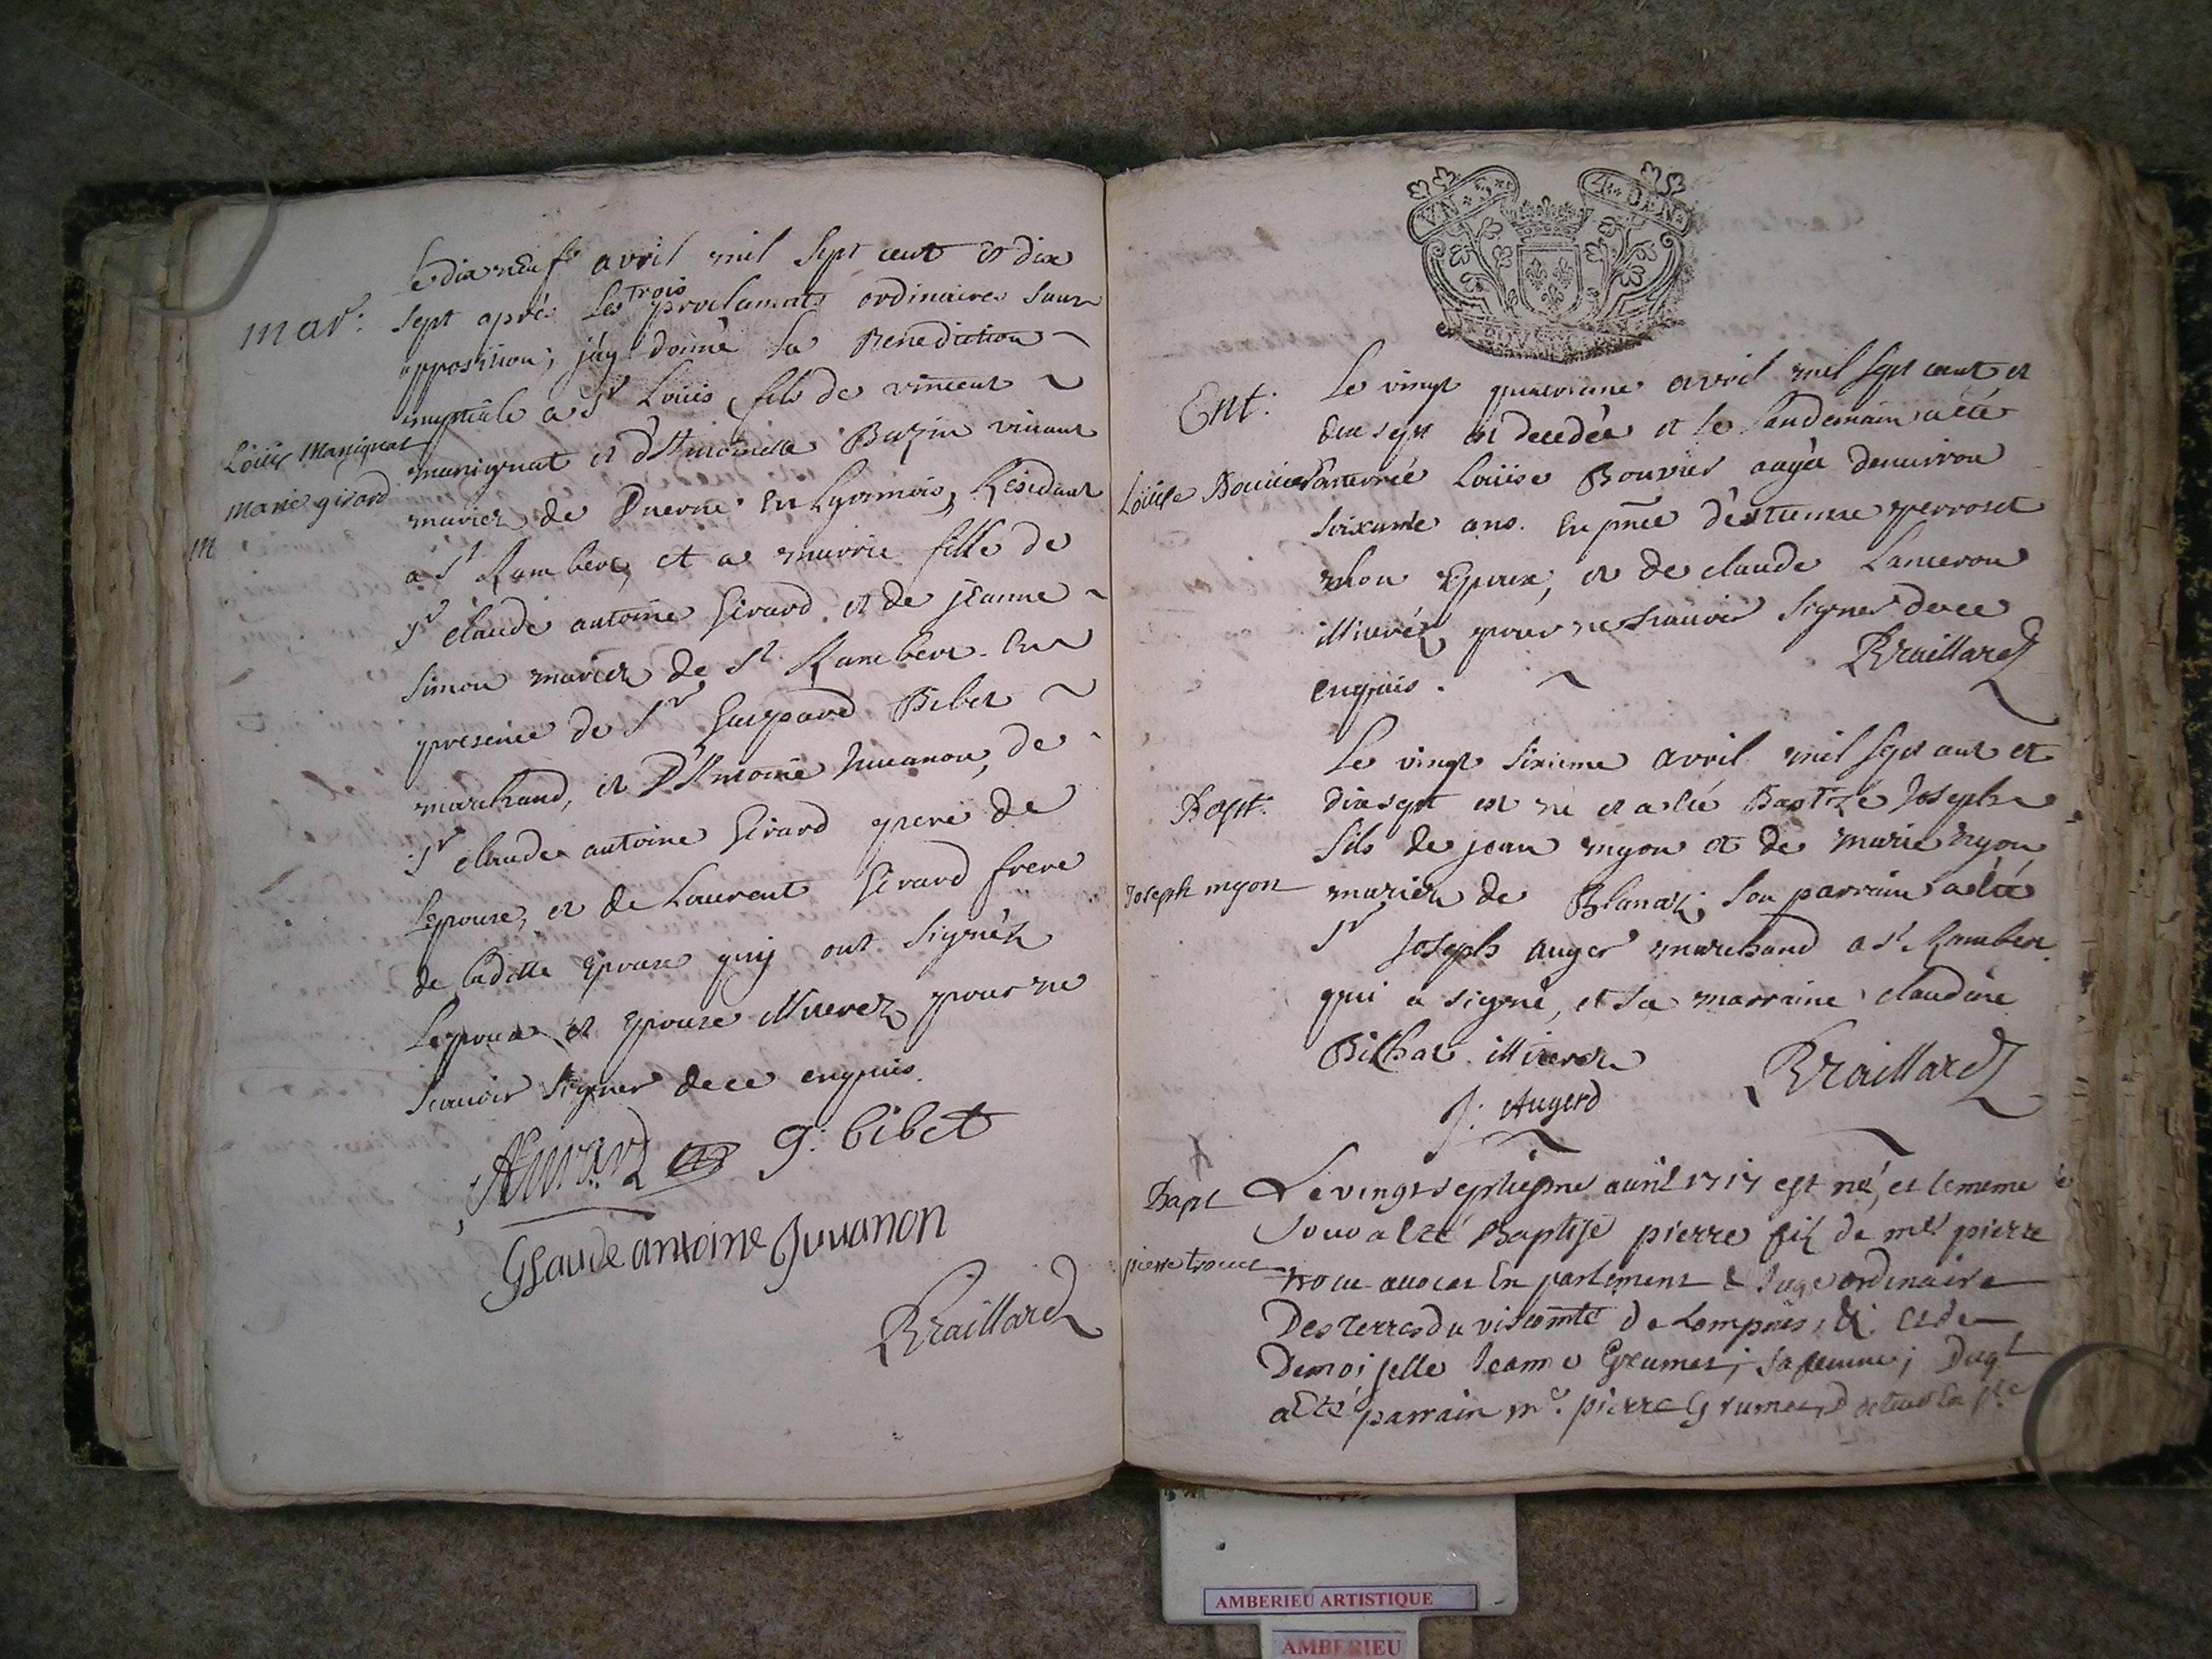 mar.
Le dix neuf avril mil sept cent et dix
sept après les trois proclamats ordinaires sans
opposition, j'ay donné la Benediction
nuptiale a Sr Loüis fils de vincent
Loüis Manignat
manignat et d'Antoinette Bazin vivant
marie girard
mariez de Duerne en Lyonnois, Residant
m
a St Rambert, et a marie fille de
Sr claude antoine Girard et de jeanne
simon mariez de St Rambert. En
presence de Sr Gaspard Bibet
marchand, et d'Antoine Juvanon, de
Sr claude antoine Girard pere de
lepouse, et de Laurent Girard frere
de laditte Epouse quy ont signéz
Lepoux et Epouse illiterez pour ne
scavoir signer de ce enquis.
g. bibet
Claude antoine Juvanon
Braillard
UN S. 4. DEN.
Ent.
Le vingt quatrieme avril mil sept cent et
dix sept est decedée et le landemain a été
Loüise Bouvier
enterrée Loüise Bouvier aagée denuirron
soixante ans. En pnce d'estienne perroset
son Epoux, et de claude Lanceron
illiteréz pour ne scauoir signer de ce
enquis.
Braillard
Le vingt sixieme avril mil sept cent et
Bapt.
dix sept est né et a été Baptizé Joseph
fils de jean myon et de marie myon
Joseph myon
mariez de Blanaz; son parrain a été
Sr Joseph auger marchand a St Rambert
qui a signé, et sa marraine claudine
Bilhat illiterez
Braillard
J. Augerd
Bapt
Le vingt septiesme auril 1717 est né, et le meme
Jour a Eté Baptisé pierre filz de me pierre
pierre trocu
trocu auocat En parlement & Juge ordinaire
Des Terres du viscomté de Lompnes, &. et de
Demoiselle Jeanne Grumet, sa femme; Duql
a Eté parrain mr. pierre Grumet,
AMBERIEU ARTISTIQUE
AMBERIEU